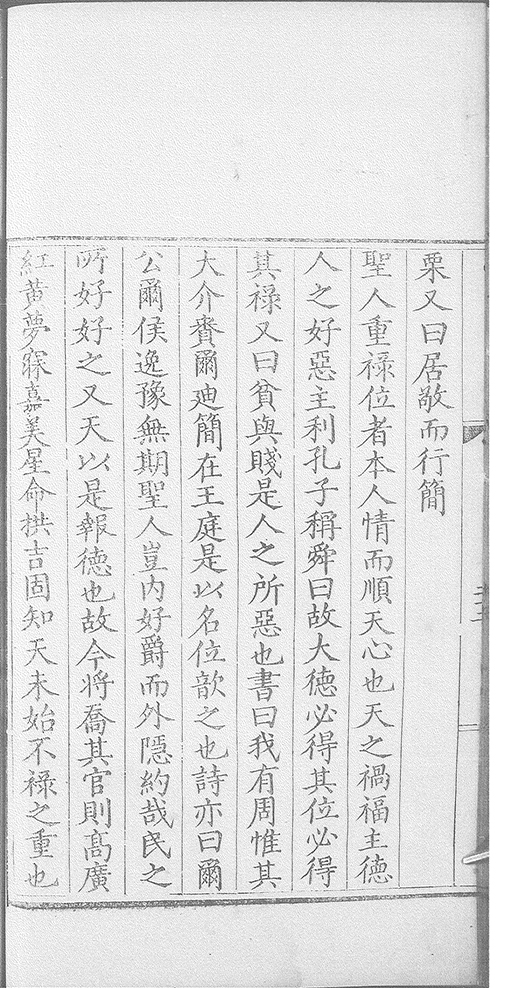 栗又曰居敬而行簡
聖人重祿位者本人情而順天心也天之禍福主德
人之好惡主利孔子稱舜曰故大德必得其位必得
其祿又曰貧與賤是人之所惡也書曰我有周惟其
大介賚爾廸簡在王庭是以名位歆之也詩亦曰爾
公爾侯逸豫無期聖人豈内好爵而外隱約哉民之
所好好之又天以是報德也故今將喬其官則髙廣
紅黄夢寐嘉美星命拱吉固知天未始不祿之重也